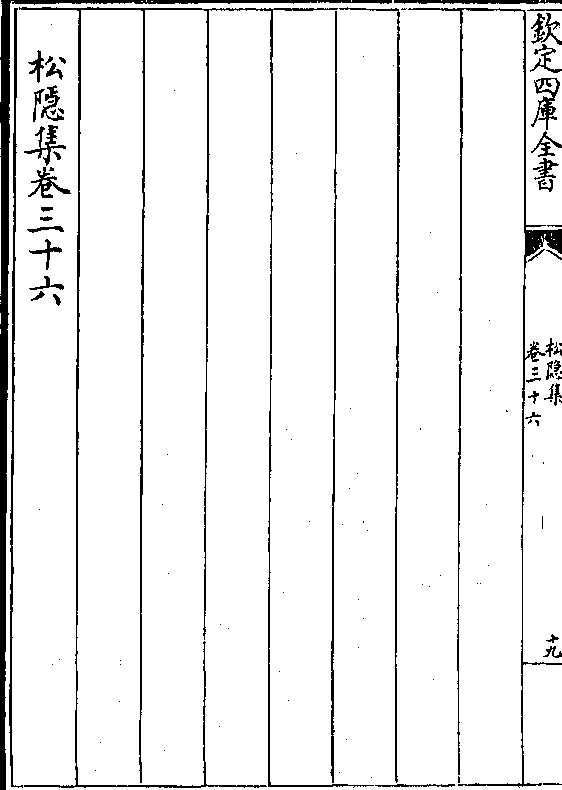 欽定四庫全書
松隱集
卷三十六
十九
松隱集卷三十六